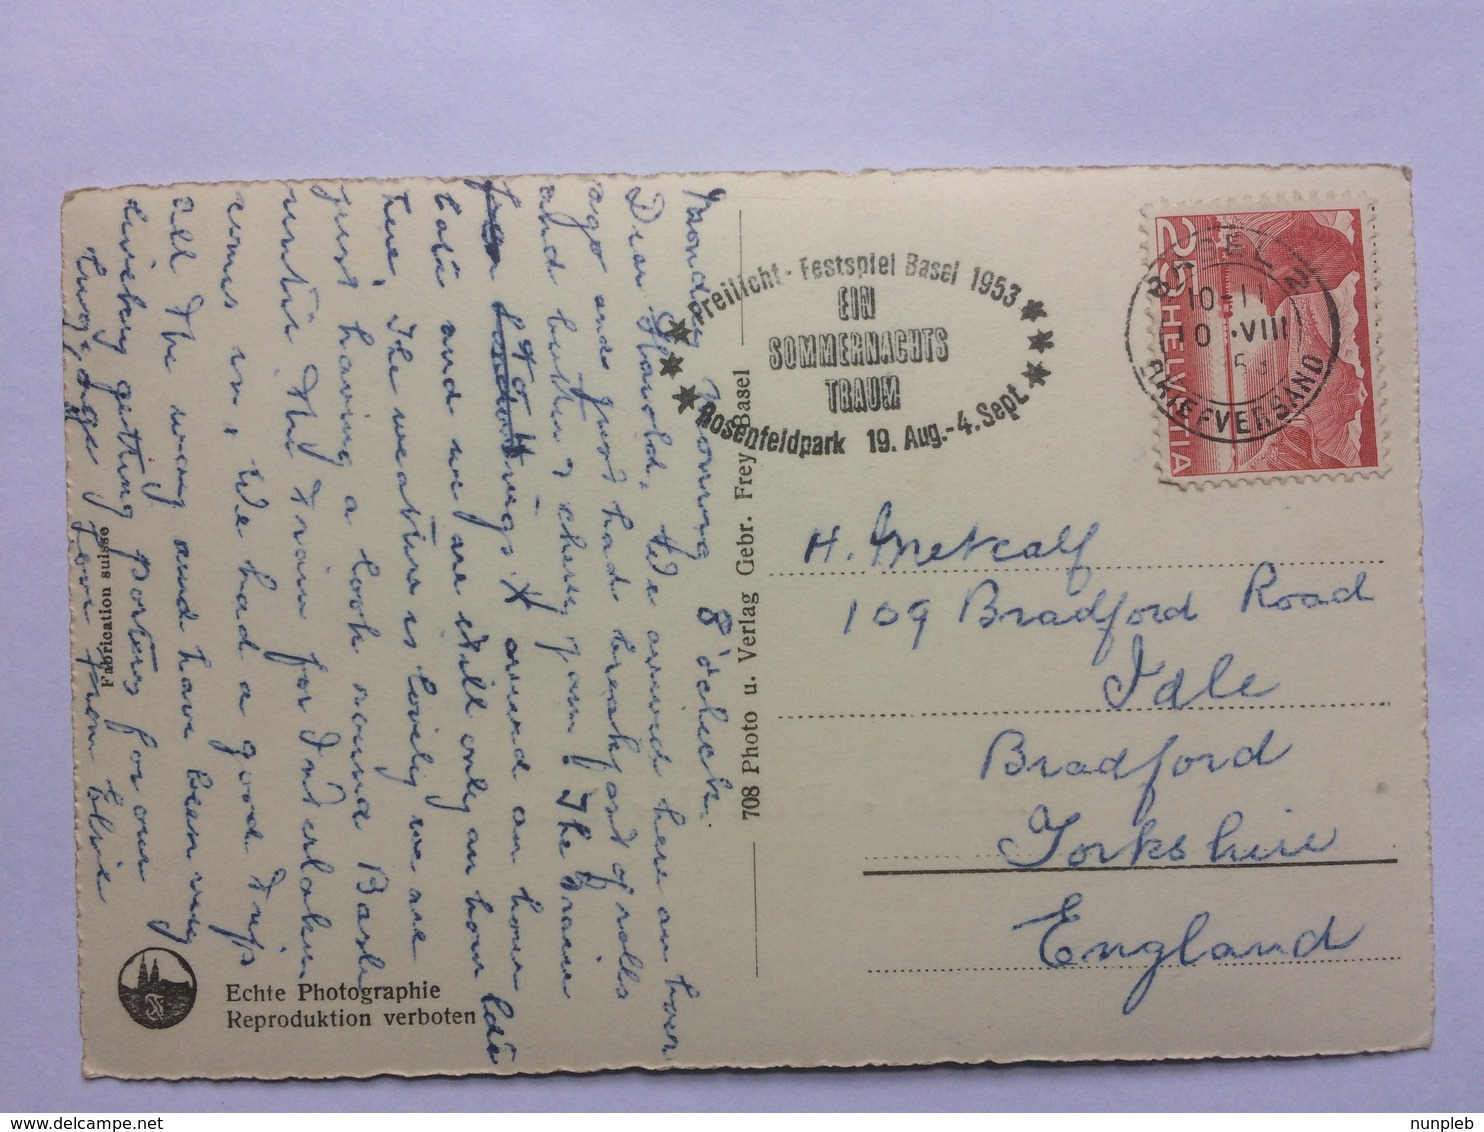 Monday Morning 8 o'clock.
Dear Harold, We arrived here an hour
ago and just had breakfast of rolls
and butter & cherry jam. The train
from H arrived an hour
late and we are still only an hour late
here. The weather is lovely we are
just having a look round Basle
until the train for Interlaken
comes in. We had a good trip
all the way and have been very
lucky getting porters for our
luggage Love from Elsie
Freilicht - Festspiel Basel 1953
EIN
SOMMERNACHTS
TRAUM
Rosenfeldpark 19. Aug.-4. Sept.
BASEL
10-1
10.VIII
BRIEFVERSAND
25
HELVETIA
H. Metcalf
109 Bradford Road
Idle
Bradford
Yorkshire
England
708 Photo u. Verlag Gebr. Frey Basel
Fabrication suisse
Echte Photographie
Reproduktion verboten
nunpleb